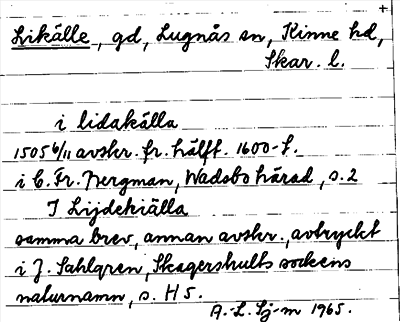 Likälle, gd, Lugnås sn, Kinne hd,
Skar. l.
i lidakälla
1505 6/11 avskr. fr. hälft. 1600-t.
i C. Fr. Bergman, Wadsbo härad, s. 2
I Lijdekiälla
samma brev, annan avskr., avtryckt
i J. Sahlgren, Skagershults sockens
naturnamn, s. H5.
A. L. Lj-m 1965.